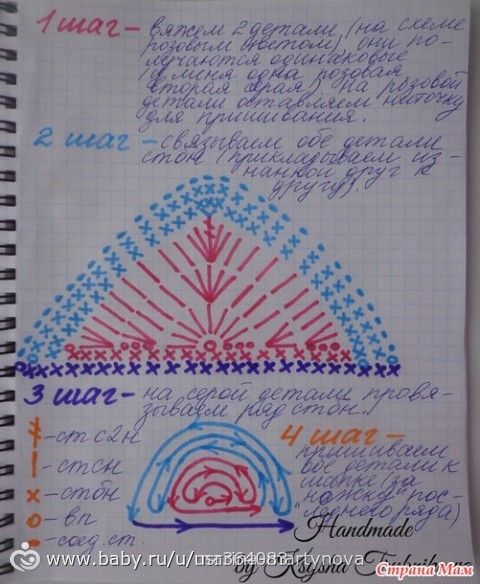 1 шаг - вяжем 2 детали (на схеме
розовым цветом), они по-
лучаются одинаковые
(у меня одна розовая
вторая серая). На розовой
детали оставляем ниточку
для пришивания.
2 шаг - связываем обе детали
стбн (прикладываем из-
нанкой друг к
другу).
3 шаг - на серой детали провя-
зываем ряд стбн.
ст с 2н
стсн
стбн
вп
соед. ст.
4 шаг -
пришиваем
обе детали к
шапке (за
"ножку" пос-
леднего ряда)
Handmade
by
www.baby.ru/u/usr364083
Страна Мам